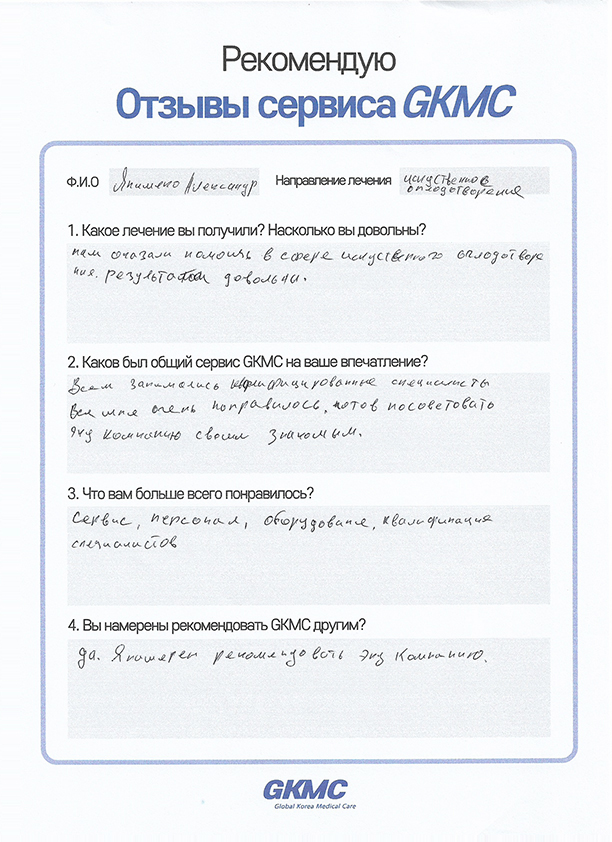 Рекомендую
Отзывы сервиса GKMC
Ф.И.О Якименко Александр Направление лечения искуственное
оплодотворение
1. Какое лечение вы получили? Насколько вы довольны?
нам оказали помощь в сфере искуственного оплодотворе
ния. результатом довольны.
2. Каков был общий сервис GKMC на ваше впечатление?
Всем занимались квалифицированные специалисты
Все мне очень понравилось, готов посоветовать
эту компанию своим знакомым.
3. Что вам больше всего понравилось?
Сервис, персонал, оборудование, квалификация
специалистов
4. Вы намерены рекомендовать GKMC другим?
да. Я намерен рекомендовать эту компанию.
GKMC
Global Korea Medical Care